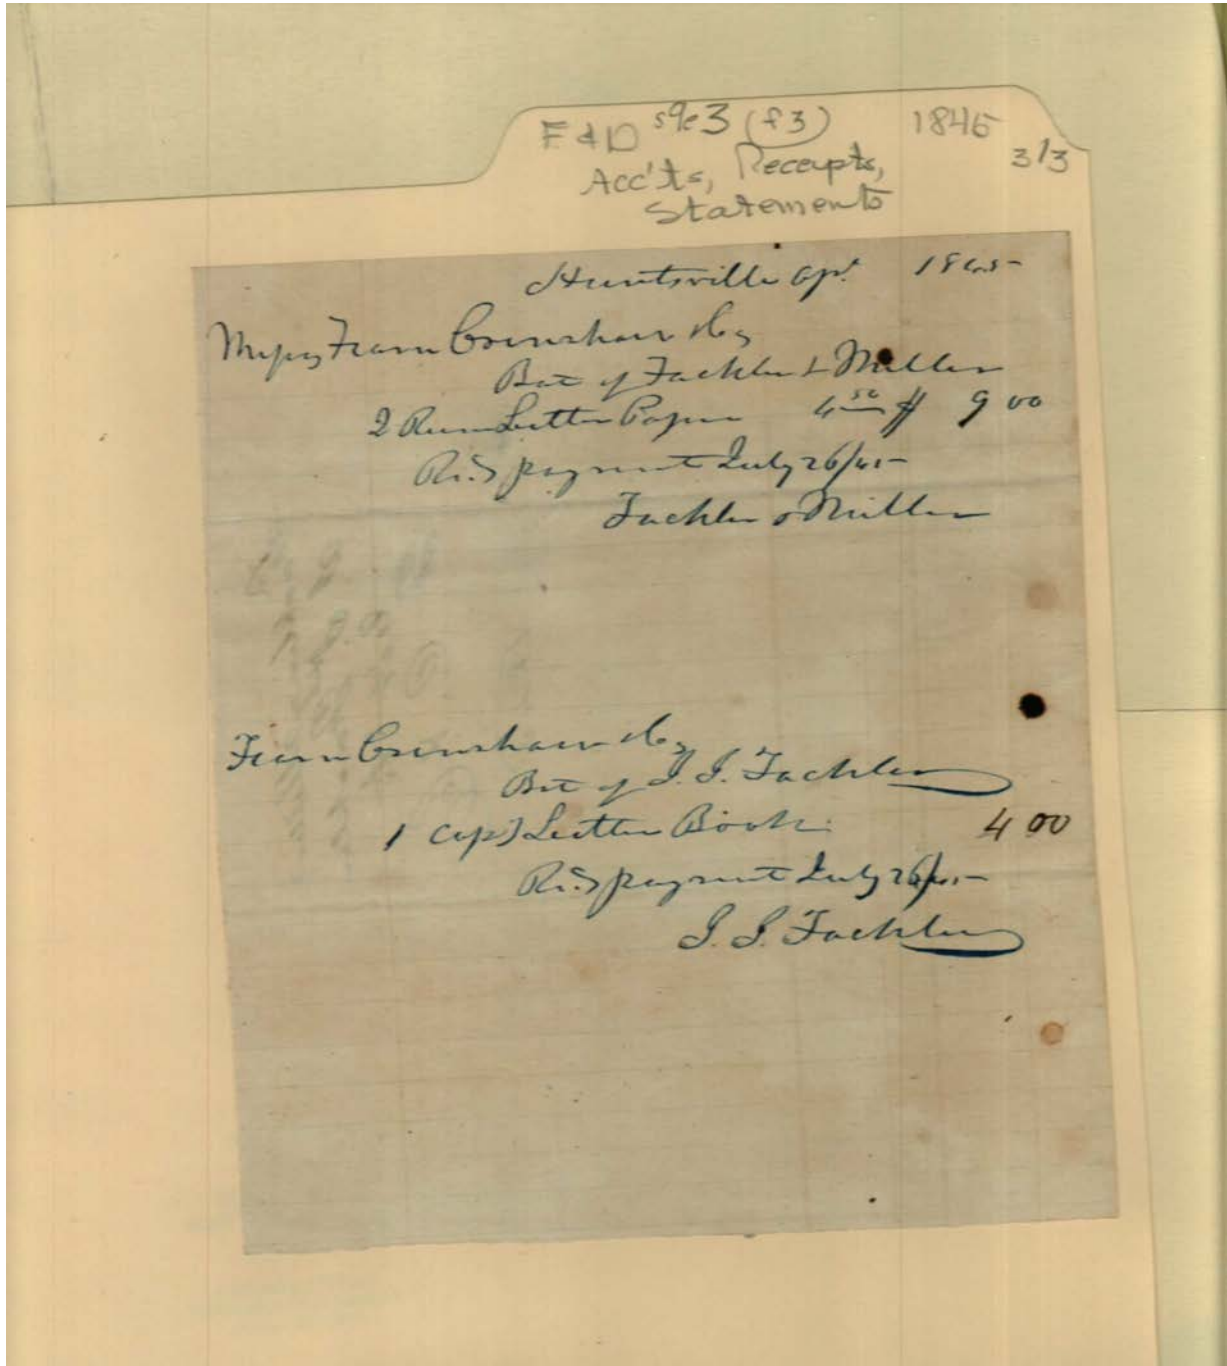 F & D s9e3 (f3) 1845
3/3
Acc'ts, Receipts,
Statements
Huntsville Apl. 1845
Messrs Fearn Crenshaw & Co
Bot of Fackler & Miller
2 Ream Letter Paper 4 50 $ 9 00
Rec'd payment July 26/45
Fackler & Miller
Fearn Crenshaw & Co
Bot of J. J. Fackler
1 Copy Letter Book 4 00
Rec'd payment July 26/45
J. J. Fackler